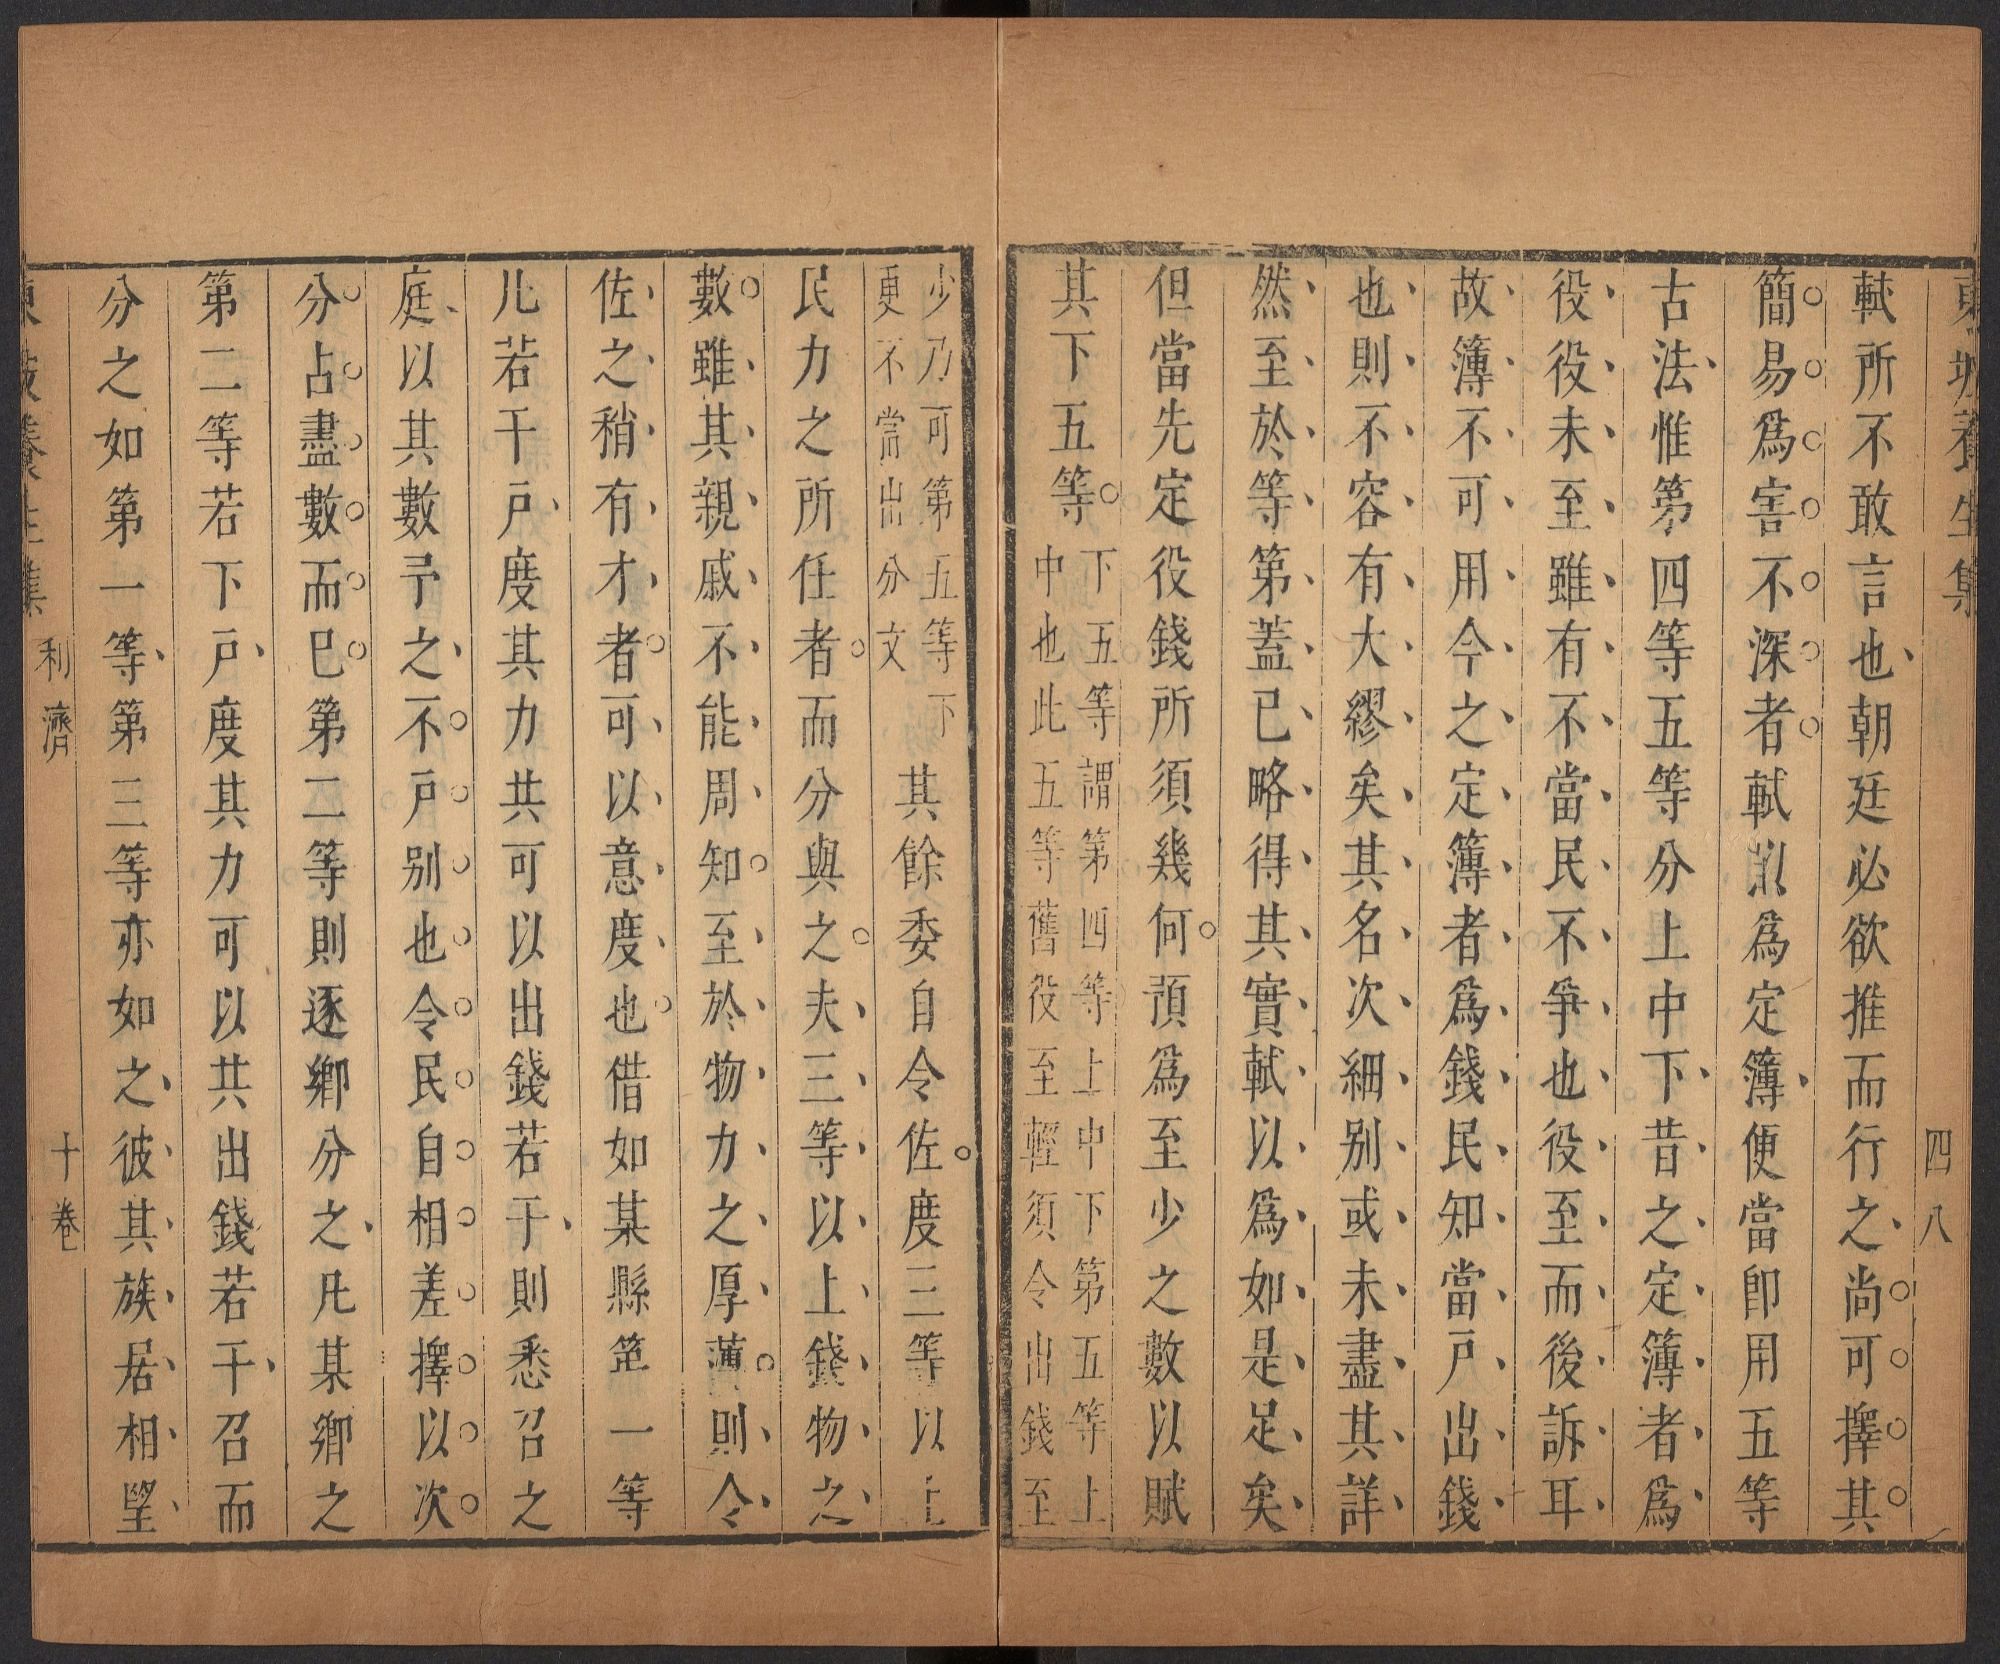 東坡養生集 四八
軾所不敢言也朝廷必欲推而行之尚可擇其
簡易爲害不深者軾以爲定簿便當卽用五等
古法惟第四等五等分上中下昔之定簿者爲
役役未至雖有不當民不爭也役至而後訴耳
故簿不可用今之定簿者爲錢民知當戸出錢
也則不容有大繆矣其名次細别或未盡其詳
然至於等第蓋已略得其實軾以爲如是足矣
但當先定役錢所須幾何預爲至少之數以賦
其下五等
下五等謂第四等上中下第五等上
中也此五等舊役至輕須令出錢至
少乃可第五等下
更不當出分文
其餘委自令佐度三等以上
民力之所任者而分與之夫三等以上錢物之
數雖其親戚不能周知至於物力之厚薄則令
佐之稍有才者可以意度也借如某縣第一等
凡若干戸度其力共可以出錢若干則悉召之
庭以其數予之不戸别也令民自相差擇以次
分占盡數而已第二等則逐鄉分之凡某鄉之
第二等若下戸度其力可以共出錢若干召而
分之如第一等第三等亦如之彼其族居相望
東坡養生集 利濟 十卷